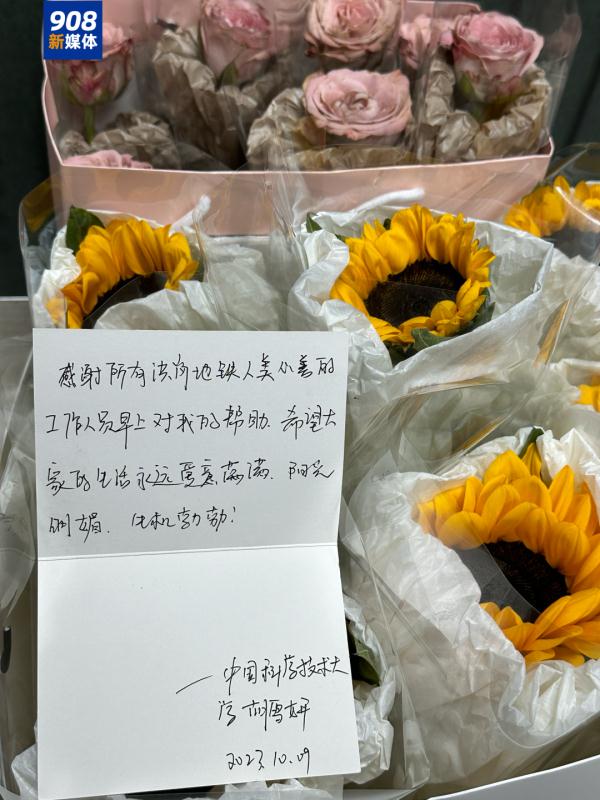 908
新媒体
感谢所有济南地铁人美心善的
工作人员早上对我的帮助. 希望大
家的生活永远爱意满满. 阳光
明媚. 生机勃勃!
—中国科学技术大
学 雪妍
2023.10.09